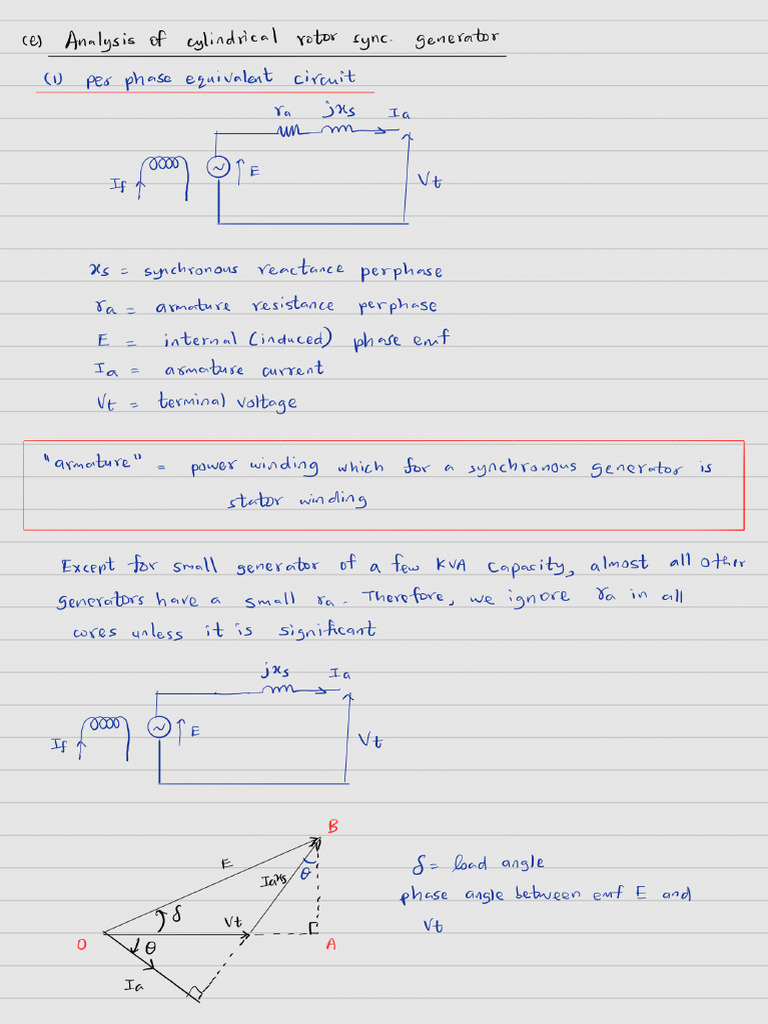 (e) Analysis of cylindrical rotor sync. generator
(1) per phase equivalent circuit
ra jxs Ia
If
E
Vt
xs = synchronous reactance perphase
ra = armature resistance perphase
E = internal (induced) phase emf
Ia = armature current
Vt = terminal voltage
"armature" = power winding which for a synchronous generator is
stator winding
Except for small generator of a few KVA capacity, almost all other
generators have a small ra. Therefore, we ignore ra in all
cores unless it is significant
jxs Ia
If
E
Vt
B
E
Iaxs
θ
δ
Vt
O
θ
A
Ia
δ = load angle
phase angle between emf E and
Vt